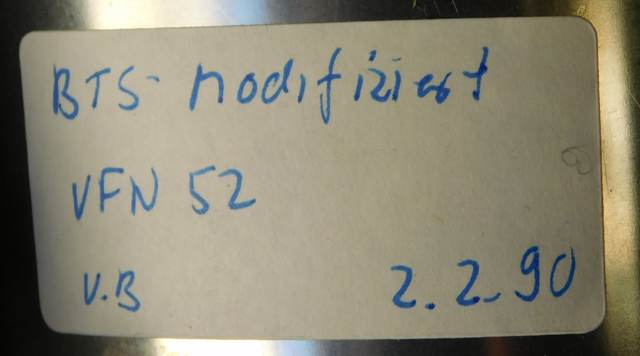 BTS- modifiziert
VFN 52
V.B 2.2.90